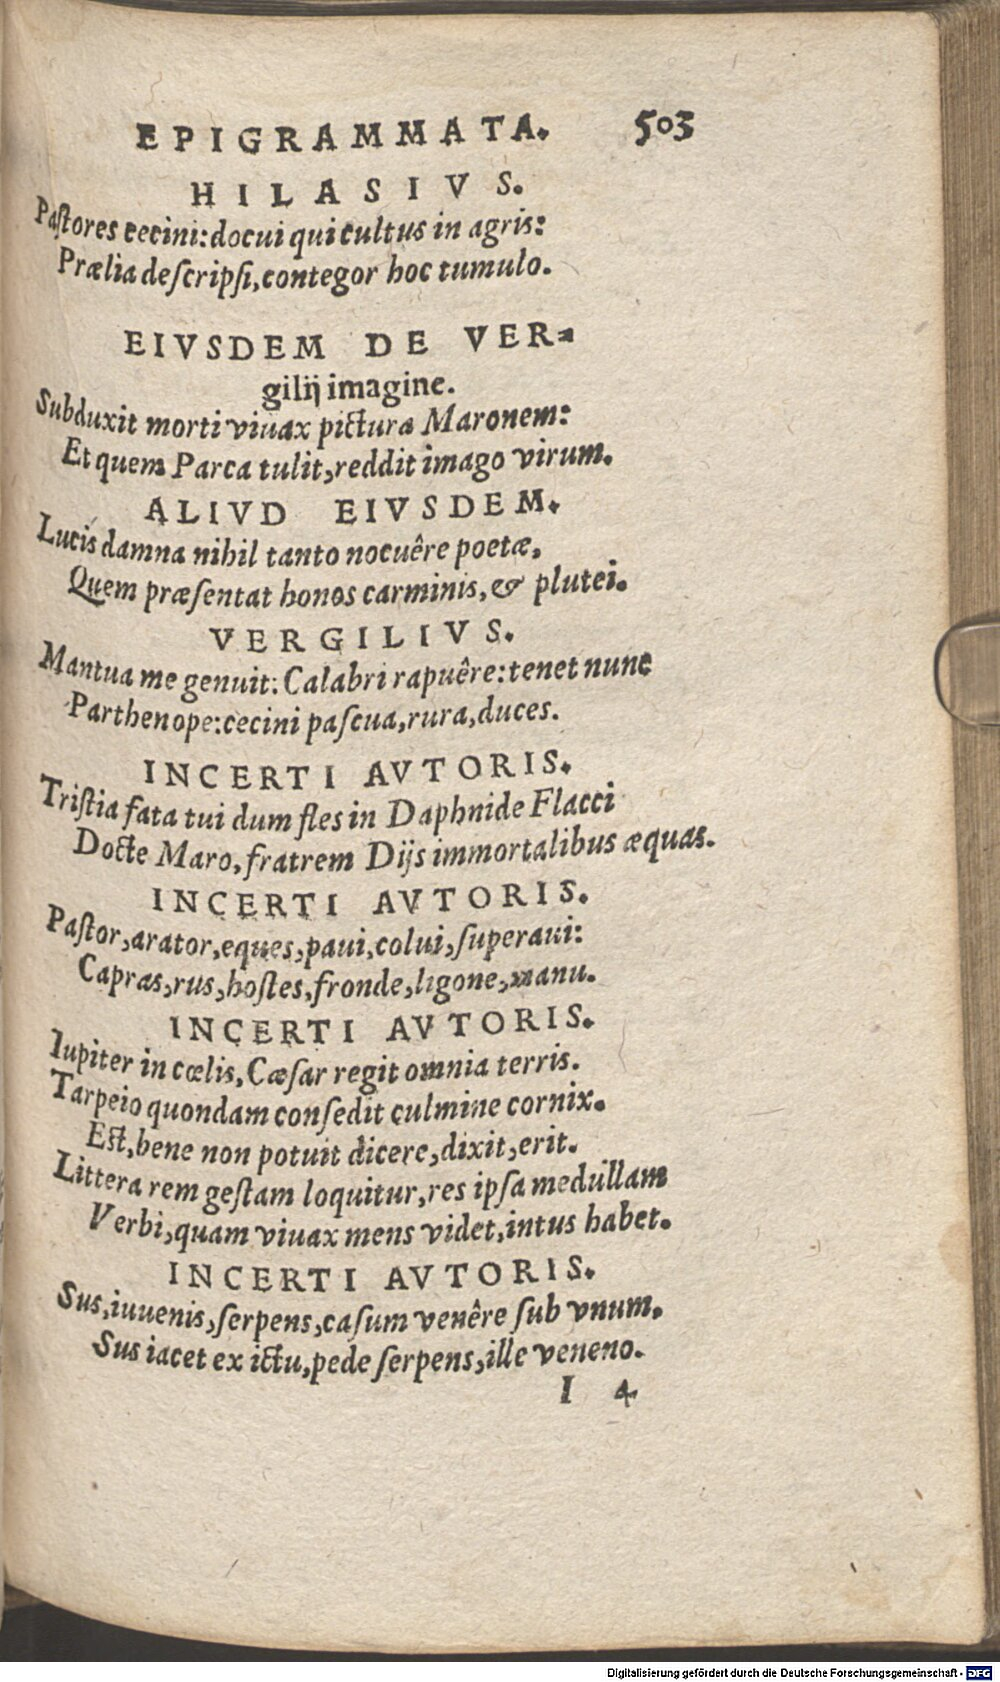 EPIGRAMMATA. 503
HILASIVS.
Paſtores cecini: docui qui cultus in agris:
Prælia deſcripſi, contegor hoc tumulo.
EIVSDEM DE VER-
gilij imagine.
Subduxit morti viuax pictura Maronem:
Et quem Parca tulit, reddit imago virum.
ALIVD EIVSDEM.
Lucis damna nihil tanto nocuêre poetæ,
Quem præſentat honos carminis, & plutei.
VERGILIVS.
Mantua me genuit: Calabri rapuêre: tenet nunc
Parthenope: cecini paſcua, rura, duces.
INCERTI AVTORIS.
Triſtia fata tui dum fles in Daphnide Flacci
Docte Maro, fratrem Dijs immortalibus æquas.
INCERTI AVTORIS.
Paſtor, arator, eques, paui, colui, ſuperaui:
Capras, rus, hoſtes, fronde, ligone, manu.
INCERTI AVTORIS.
Iupiter in cœlis, Cæſar regit omnia terris.
Tarpeio quondam conſedit culmine cornix.
Eſt, bene non potuit dicere, dixit, erit.
Littera rem geſtam loquitur, res ipſa medullam
Verbi, quam viuax mens videt, intus habet.
INCERTI AVTORIS.
Sus, iuuenis, ſerpens, caſum venêre ſub vnum.
Sus iacet ex ictu, pede ſerpens, ille veneno.
I 4
Digitalisierung gefördert durch die Deutsche Forschungsgemeinschaft - DFG